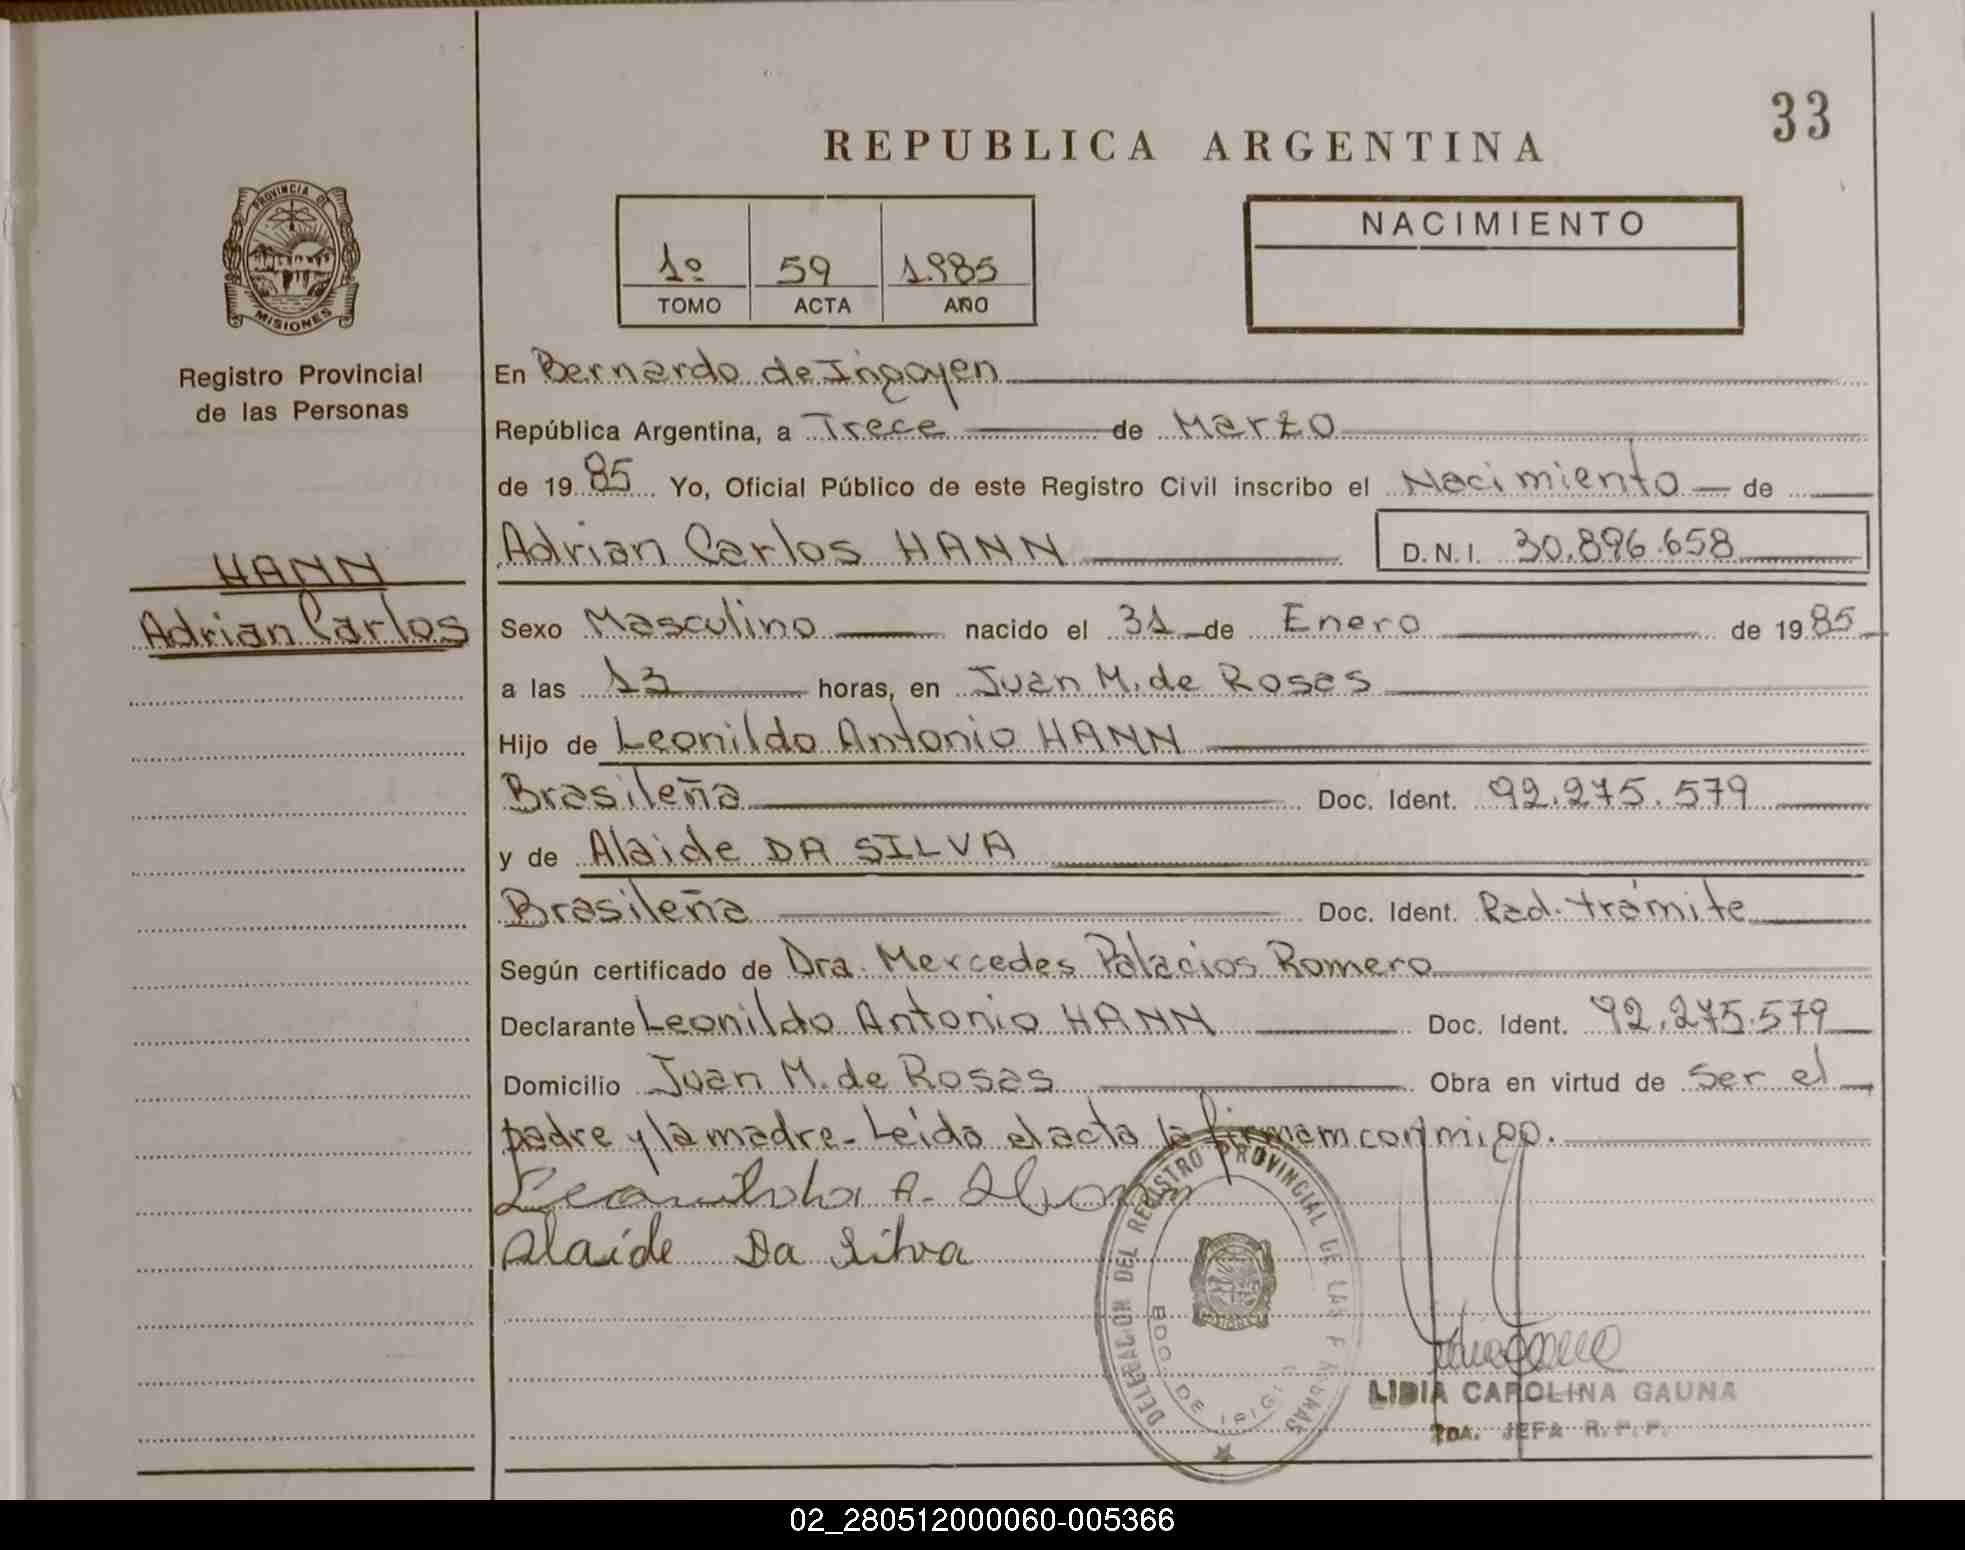 33
REPUBLICA ARGENTINA
PROVINCIA DE
MISIONES
Registro Provincial
de las Personas
1º 59 1.985
TOMO ACTA AÑO
NACIMIENTO
En Bernardo de Irigoyen
República Argentina, a Trece de Marzo
de 1985 Yo, Oficial Público de este Registro Civil inscribo el Nacimiento de
Adrian Carlos HANN D.N.I. 30.896.658
HANN
Adrian Carlos
Sexo Masculino nacido el 31 de Enero de 1985
a las 13 horas, en Juan M. de Rosas
Hijo de Leonildo Antonio HANN
Brasileña Doc. Ident. 92.275.579
y de Alaide DA SILVA
Brasileña Doc. Ident. Rad. trámite
Según certificado de Dra. Mercedes Palacios Romero
Declarante Leonildo Antonio HANN Doc. Ident. 92.275.579
Domicilio Juan M. de Rosas Obra en virtud de ser el
padre y la madre - Leída el acta la firmam conmigo.
A.
Alaide Da Silva
DELEGACION DEL REGISTRO PROVINCIAL DE LAS PERSONAS
BDO. DE IRIG.
LIDIA CAROLINA GAUNA
2DA. JEFA R.P.P.
02_280512000060-005366